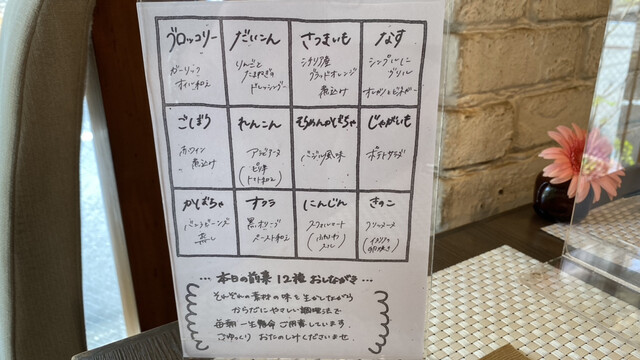 ブロッコリー
ガーリック
オイル和え
だいこん
りんごと
たまねぎの
ドレッシング
さつまいも
シチリア産
ブラッドオレンジ
煮込け
なす
シンプルに
グリル
オレガノとビネガー
ごぼう
赤ワイン
煮込け
れんこん
アラビアータ
(ピリ辛
トマト和え)
そうめんかぼちゃ
バジル風味
じゃがいも
ポテトサラダ
かぼちゃ
蒸し
オクラ
黒オリーブ
ペースト和え
にんじん
スフォルマート
きのこ
フリッタータ
(イタリア
卵焼き)
… 本日の前菜 12種 おしながき …
それぞれの素材の味を生かしながら
からだにやさしい調理法で
毎朝一生懸命ご用意しています。
ごゆっくり おたのしみくださいませ。